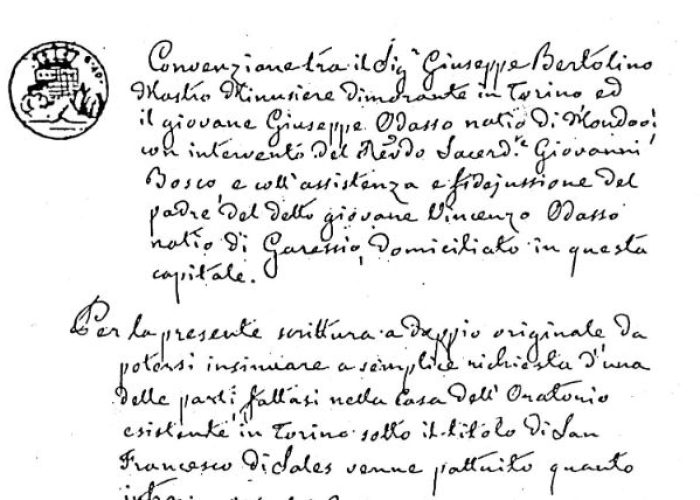 Convenzione tra il Sigr Giuseppe Bertolino
Mastro Minusiere dimorante in Torino ed
il giovane Giuseppe Odasso natio di Mondovi
con intervento del Revdo Sacerde Giovanni
Bosco, e coll'assistenza e fidejussione del
padre del detto giovane Vincenzo Odasso
natio di Garessio, domiciliato in questa
capitale.
Per la presente scrittura a doppio originale da
potersi insinuare a semplice richiesta d'una
delle parti, fattasi nella Casa dell'Oratorio
esistente in Torino sotto il titolo di San
Francesco di Sales venne pattuito quanto